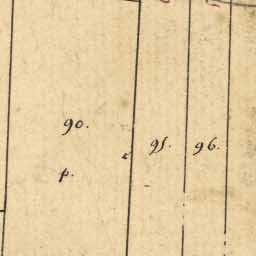 90.
95.
96.
p.